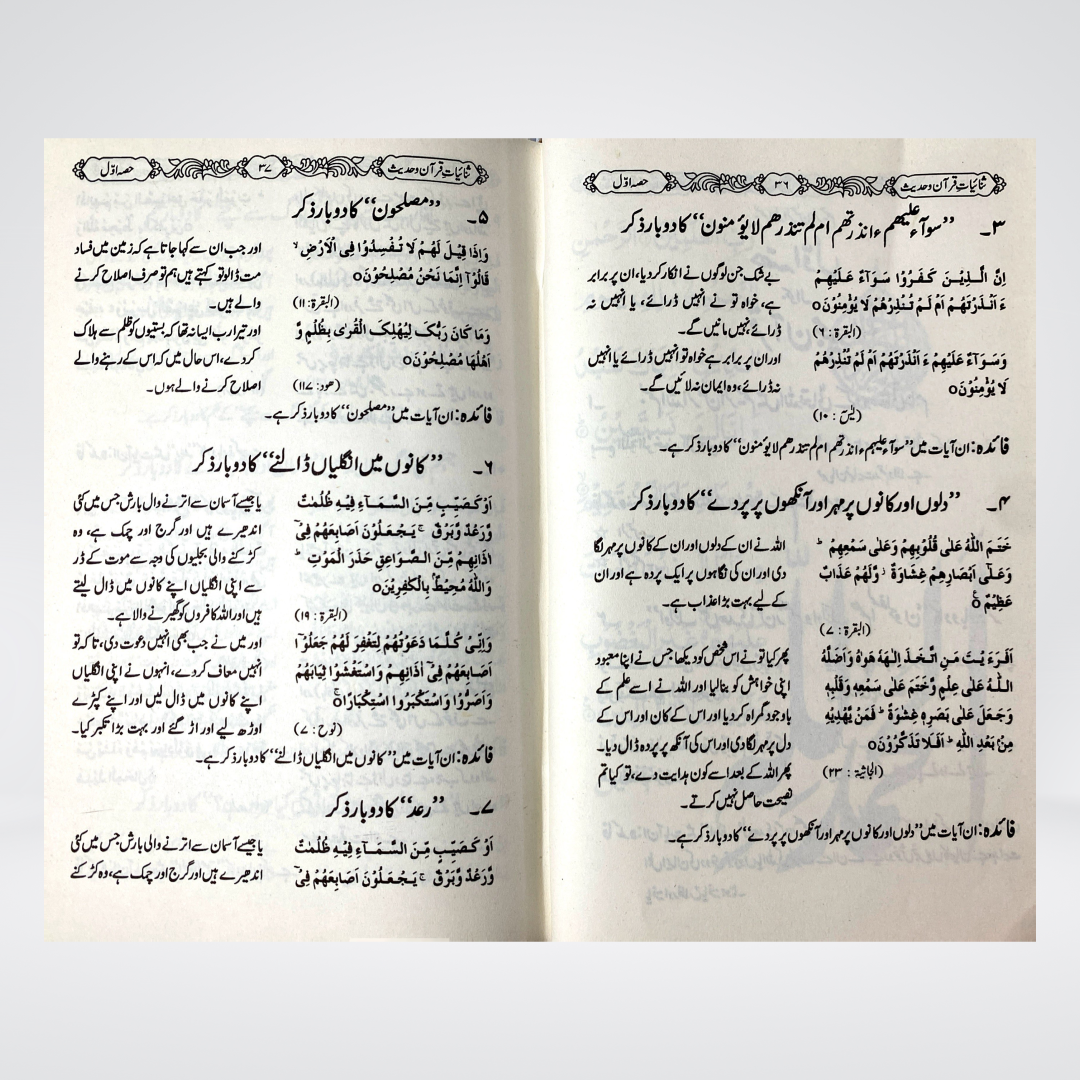 ثنائیات قرآن و حدیث ۳۶ حصہ اوّل
۳۔ ”سوآء علیھم ءانذرتھم ام لم تنذرھم لا یؤمنون“ کا دو بار ذکر
اِنَّ الَّذِیْنَ كَفَرُوْا سَوَآءٌ عَلَیْهِمْ
ءَاَنْذَرْتَهُمْ اَمْ لَمْ تُنْذِرْهُمْ لَا یُؤْمِنُوْنَ o
(البقرة: ۶)
بے شک جن لوگوں نے انکار کر دیا، ان پر برابر
ہے، خواہ تو نے انہیں ڈرائے، یا انہیں نہ
ڈرائے، نہیں مانیں گے۔
وَسَوَآءٌ عَلَیْهِمْ ءَاَنْذَرْتَهُمْ اَمْ لَمْ تُنْذِرْهُمْ
لَا یُؤْمِنُوْنَ o
(یٰسٓ: ۱۰)
اور ان پر برابر ہے خواہ تو انہیں ڈرائے یا انہیں
نہ ڈرائے، وہ ایمان نہ لائیں گے۔
فائدہ: ان آیات میں ”سوآء علیھم ءانذرتھم ام لم تنذرھم لا یؤمنون“ کا دو بار ذکر ہے۔
۴۔ ”دلوں اور کانوں پر مہر اور آنکھوں پر پردے“ کا دو بار ذکر
خَتَمَ اللّٰهُ عَلٰى قُلُوْبِهِمْ وَعَلٰى سَمْعِهِمْ ؕ
وَعَلٰۤى اَبْصَارِهِمْ غِشَاوَةٌ ؗ وَّلَهُمْ عَذَابٌ
عَظِیْمٌ o
(البقرة: ۷)
اللہ نے ان کے دلوں اور ان کے کانوں پر مہر لگا
دی اور ان کی نگاہوں پر ایک پردہ ہے اور ان
کے لیے بہت بڑا عذاب ہے۔
اَفَرَءَیْتَ مَنِ اتَّخَذَ اِلٰهَهٗ هَوٰىهُ وَاَضَلَّهُ
اللّٰهُ عَلٰى عِلْمٍ وَّخَتَمَ عَلٰى سَمْعِهٖ وَقَلْبِهٖ
وَجَعَلَ عَلٰى بَصَرِهٖ غِشٰوَةً ؕ فَمَنْ یَّهْدِیْهِ
مِنْۢ بَعْدِ اللّٰهِ ؕ اَفَلَا تَذَكَّرُوْنَ o
(الجاثیة: ۲۳)
پھر کیا تو نے اس شخص کو دیکھا جس نے اپنا معبود
اپنی خواہش کو بنا لیا اور اللہ نے اسے علم کے
باوجود گمراہ کر دیا اور اس کے کان اور اس کے
دل پر مہر لگا دی اور اس کی آنکھ پر پردہ ڈال دیا۔
پھر اللہ کے بعد اسے کون ہدایت دے، تو کیا تم
نصیحت حاصل نہیں کرتے۔
فائدہ: ان آیات میں ”دلوں اور کانوں پر مہر اور آنکھوں پر پردے“ کا دو بار ذکر ہے۔
ثنائیات قرآن و حدیث ۳۷ حصہ اوّل
۵۔ ”مصلحون“ کا دو بار ذکر
وَاِذَا قِیْلَ لَهُمْ لَا تُفْسِدُوْا فِی الْاَرْضِ ۙ
قَالُوْۤا اِنَّمَا نَحْنُ مُصْلِحُوْنَ o
(البقرة: ۱۱)
اور جب ان سے کہا جاتا ہے کہ زمین میں فساد
مت ڈالو تو کہتے ہیں ہم تو صرف اصلاح کرنے
والے ہیں۔
وَمَا كَانَ رَبُّكَ لِیُهْلِكَ الْقُرٰى بِظُلْمٍ وَّ
اَهْلُهَا مُصْلِحُوْنَ o
(ھود: ۱۱۷)
اور تیرا رب ایسا نہ تھا کہ بستیوں کو ظلم سے ہلاک
کر دے، اس حال میں کہ اس کے رہنے والے
اصلاح کرنے والے ہوں۔
فائدہ: ان آیات میں ”مصلحون“ کا دو بار ذکر ہے۔
۶۔ ”کانوں میں انگلیاں ڈالنے“ کا دو بار ذکر
اَوْ كَصَیِّبٍ مِّنَ السَّمَآءِ فِیْهِ ظُلُمٰتٌ
وَّرَعْدٌ وَّبَرْقٌ ۚ یَجْعَلُوْنَ اَصَابِعَهُمْ فِیْۤ
اٰذَانِهِمْ مِّنَ الصَّوَاعِقِ حَذَرَ الْمَوْتِ ؕ
وَاللّٰهُ مُحِیْطٌۢ بِالْكٰفِرِیْنَ o
(البقرة: ۱۹)
یا جیسے آسمان سے اترنے وال بارش جس میں کئی
اندھیرے ہیں اور گرج اور چمک ہے، وہ
کڑکنے والی بجلیوں کی وجہ سے موت کے ڈر
سے اپنی انگلیاں اپنے کانوں میں ڈال لیتے
ہیں اور اللہ کافروں کو گھیرنے والا ہے۔
وَاِنِّیْ كُلَّمَا دَعَوْتُهُمْ لِتَغْفِرَ لَهُمْ جَعَلُوْۤا
اَصَابِعَهُمْ فِیْۤ اٰذَانِهِمْ وَاسْتَغْشَوْا ثِیَابَهُمْ
وَاَصَرُّوْا وَاسْتَكْبَرُوا اسْتِكْبَارًا o
(نوح: ۷)
اور میں نے جب بھی انہیں دعوت دی، تاکہ تو
انہیں معاف کر دے، انہوں نے اپنی انگلیاں
اپنے کانوں میں ڈال لیں اور اپنے کپڑے
اوڑھ لیے اور اڑ گئے اور بہت بڑا تکبر کیا۔
فائدہ: ان آیات میں ”کانوں میں انگلیاں ڈالنے“ کا دو بار ذکر ہے۔
۷۔ ”رعد“ کا دو بار ذکر
اَوْ كَصَیِّبٍ مِّنَ السَّمَآءِ فِیْهِ ظُلُمٰتٌ
وَّرَعْدٌ وَّبَرْقٌ ۚ یَجْعَلُوْنَ اَصَابِعَهُمْ فِیْۤ
یا جیسے آسمان سے اترنے والی بارش جس میں کئی
اندھیرے ہیں اور گرج اور چمک ہے، وہ کڑکنے